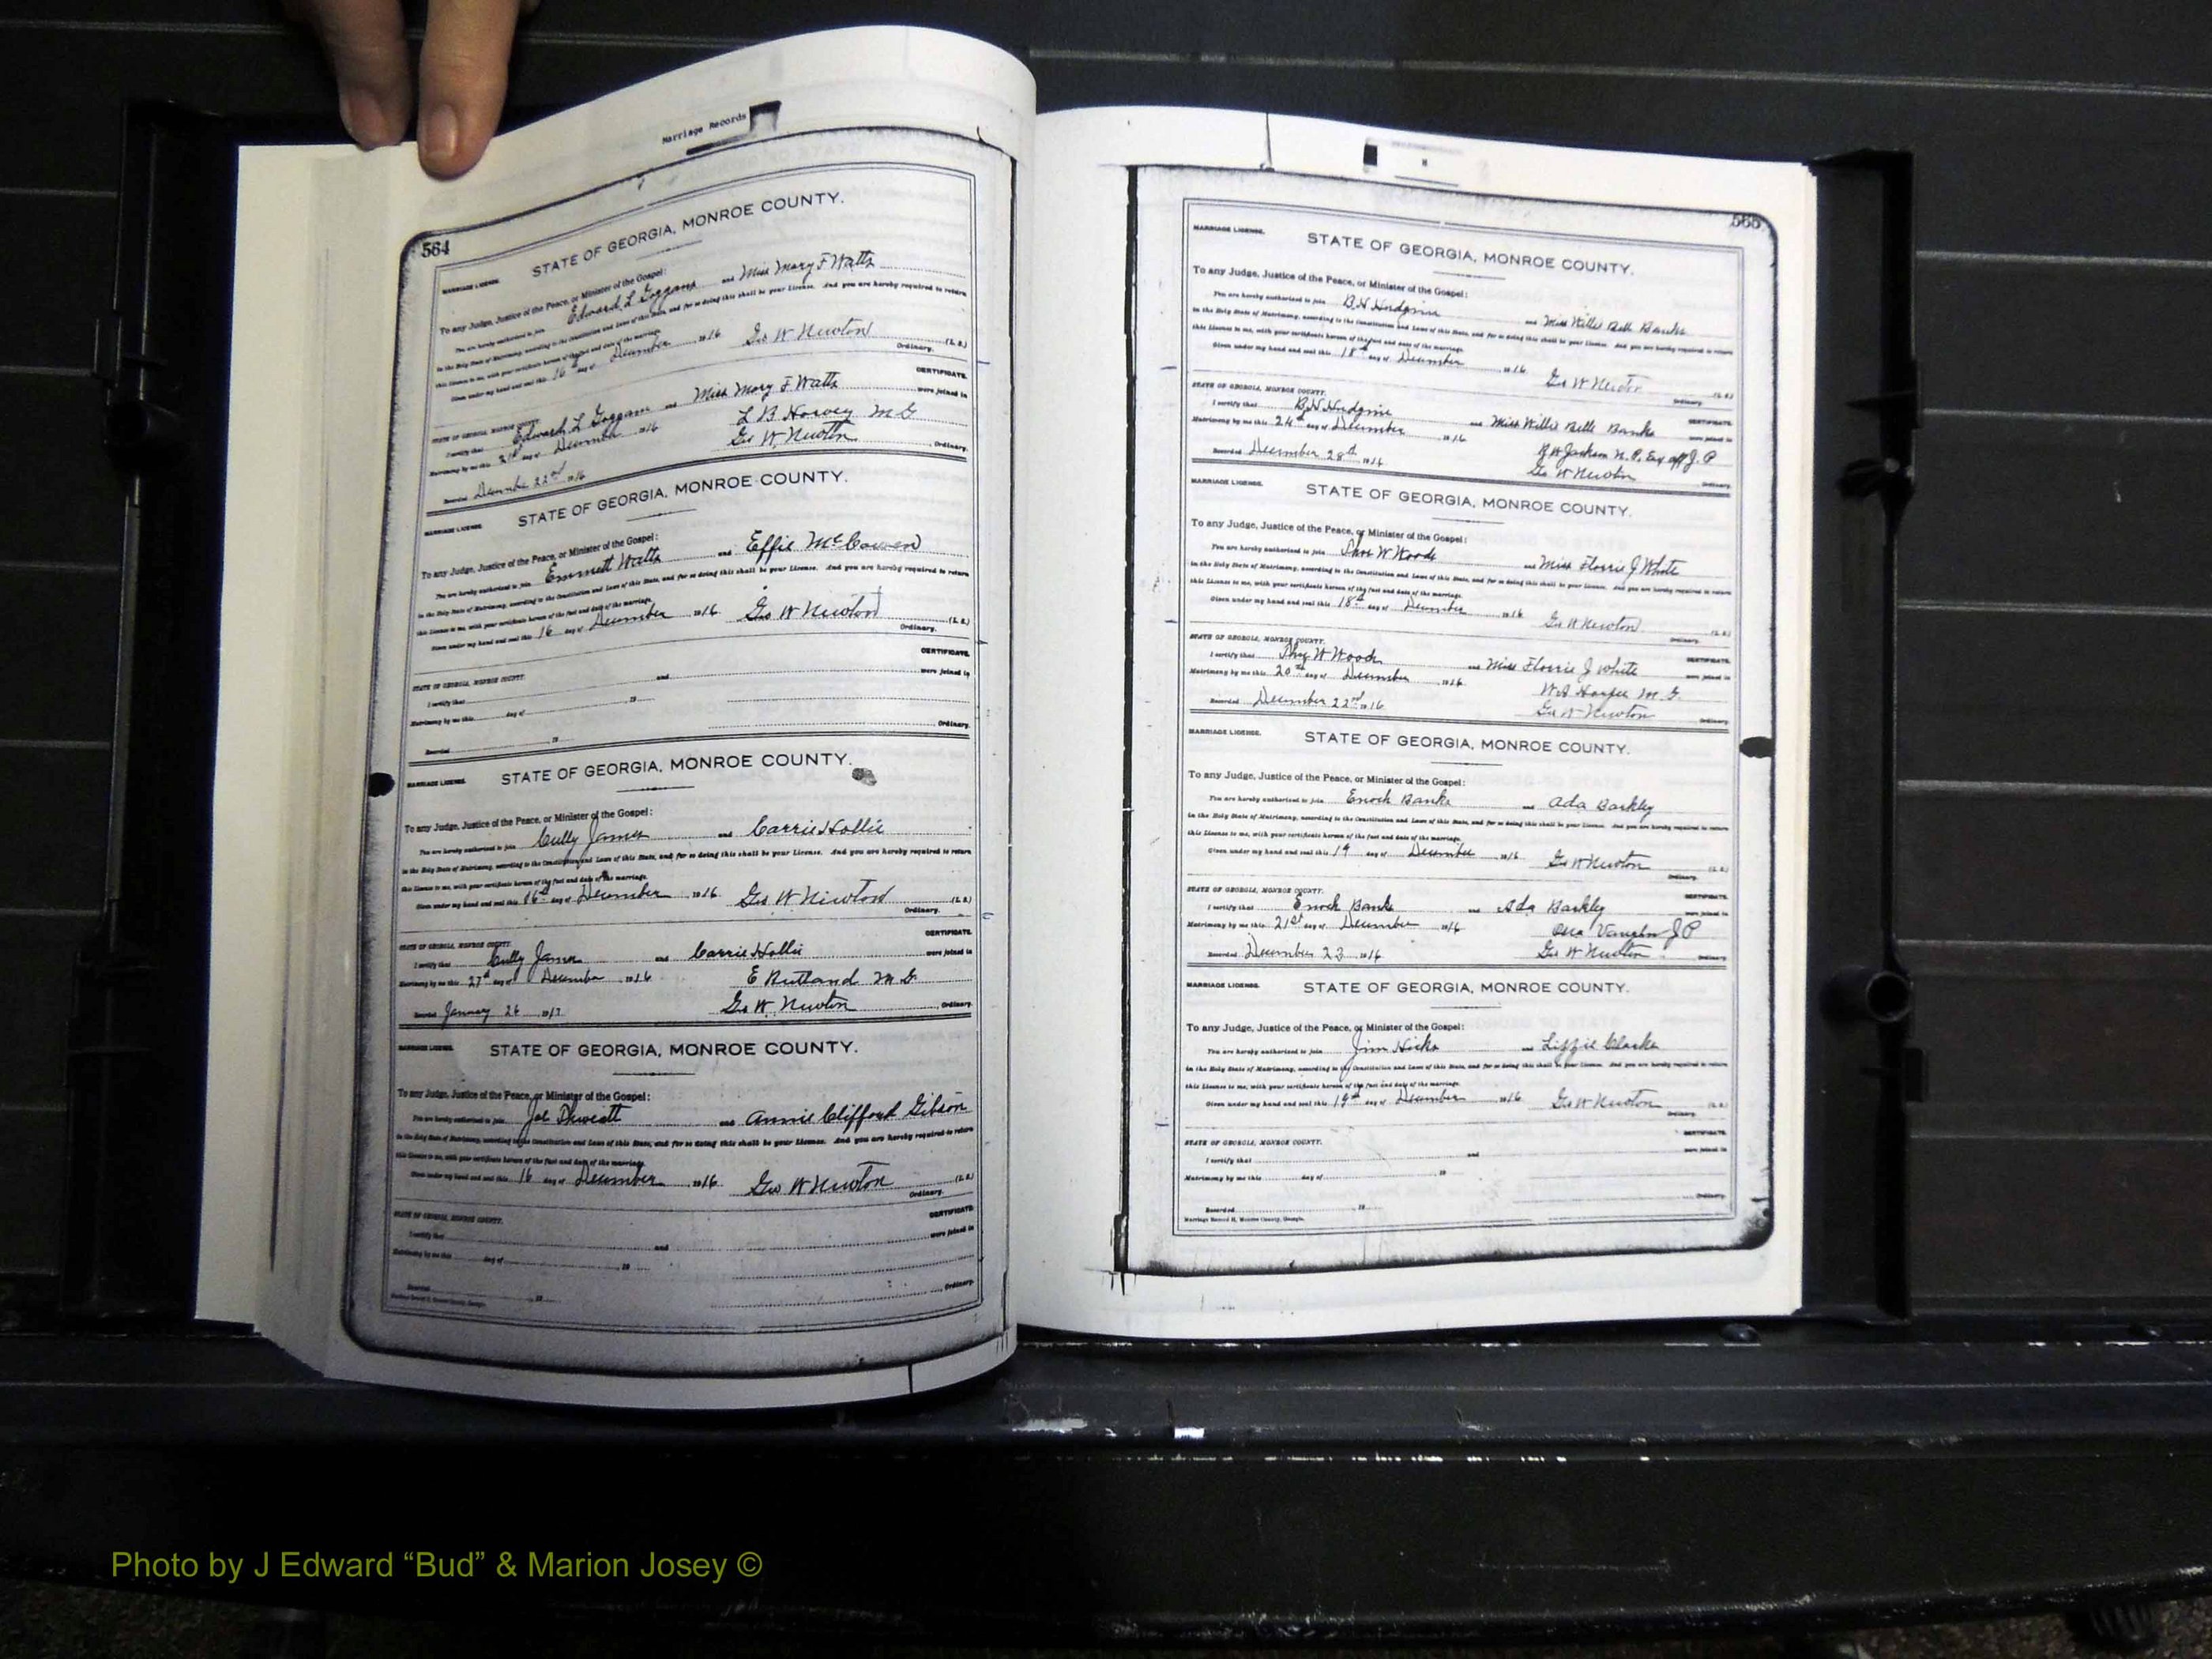 Marriage Records
564
MARRIAGE LICENSE.
STATE OF GEORGIA, MONROE COUNTY.
To any Judge, Justice of the Peace, or Minister of the Gospel:
You are hereby authorized to join Edward L Goggans and Miss Mary F Watts
in the Holy State of Matrimony, according to the Constitution and Laws of this State, and for so doing this shall be your License. And you are hereby required to return
this License to me, with your certificate hereon of the fact and date of the marriage.
Given under my hand and seal this 16th day of December 1916 Geo W Newton (L. S.)
Ordinary.
CERTIFICATE.
STATE OF GEORGIA, MONROE COUNTY.
I certify that Edward L Goggans and Miss Mary F Watts were joined in
Matrimony by me this 21st day of December 1916 L B Harvey M G
Geo W. Newton Ordinary.
Recorded December 22nd 1916
MARRIAGE LICENSE.
STATE OF GEORGIA, MONROE COUNTY.
To any Judge, Justice of the Peace, or Minister of the Gospel:
You are hereby authorized to join Emmett Watts and Effie McCowen
in the Holy State of Matrimony, according to the Constitution and Laws of this State, and for so doing this shall be your License. And you are hereby required to return
this License to me, with your certificate hereon of the fact and date of the marriage.
Given under my hand and seal this 16 day of December 1916 Geo W Newton (L. S.)
Ordinary.
CERTIFICATE.
STATE OF GEORGIA, MONROE COUNTY.
I certify that and were joined in
Matrimony by me this day of 19
Ordinary.
Recorded 19
MARRIAGE LICENSE.
STATE OF GEORGIA, MONROE COUNTY.
To any Judge, Justice of the Peace, or Minister of the Gospel:
You are hereby authorized to join Cully James and Carrie Hollie
in the Holy State of Matrimony, according to the Constitution and Laws of this State, and for so doing this shall be your License. And you are hereby required to return
this License to me, with your certificate hereon of the fact and date of the marriage.
Given under my hand and seal this 16th day of December 1916 Geo W Newton (L. S.)
Ordinary.
CERTIFICATE.
STATE OF GEORGIA, MONROE COUNTY.
I certify that Cully James and Carrie Hollie were joined in
Matrimony by me this 27th day of December 1916 E Rutland M G.
Geo W. Newton Ordinary.
Recorded January 26 1917
MARRIAGE LICENSE.
STATE OF GEORGIA, MONROE COUNTY.
To any Judge, Justice of the Peace, or Minister of the Gospel:
You are hereby authorized to join Joe and Annie Clifford Gibson
in the Holy State of Matrimony, according to the Constitution and Laws of this State, and for so doing this shall be your License. And you are hereby required to return
this License to me, with your certificate hereon of the fact and date of the marriage.
Given under my hand and seal this 16 day of December 1916 Geo W Newton (L. S.)
Ordinary.
CERTIFICATE.
STATE OF GEORGIA, MONROE COUNTY.
I certify that and were joined in
Matrimony by me this day of 19
Ordinary.
Recorded 19
565
MARRIAGE LICENSE.
STATE OF GEORGIA, MONROE COUNTY.
To any Judge, Justice of the Peace, or Minister of the Gospel:
You are hereby authorized to join B. H. Hudgins and Miss Willie Bell Banks
in the Holy State of Matrimony, according to the Constitution and Laws of this State, and for so doing this shall be your License. And you are hereby required to return
this License to me, with your certificate hereon of the fact and date of the marriage.
Given under my hand and seal this 18th day of December 1916 Geo W Newton (L. S.)
Ordinary.
STATE OF GEORGIA, MONROE COUNTY. CERTIFICATE.
I certify that B. H. Hudgins and Miss Willie Belle Banks were joined in
Matrimony by me this 24th day of December 1916 Jackson N. P. Ex off J. P
Recorded December 28th 1916 Geo W Newton Ordinary.
MARRIAGE LICENSE.
STATE OF GEORGIA, MONROE COUNTY.
To any Judge, Justice of the Peace, or Minister of the Gospel:
You are hereby authorized to join Thos W Woods and Miss Florrie J White
in the Holy State of Matrimony, according to the Constitution and Laws of this State, and for so doing this shall be your License. And you are hereby required to return
this License to me, with your certificate hereon of the fact and date of the marriage.
Given under my hand and seal this 18th day of December 1916 Geo W Newton (L. S.)
Ordinary.
STATE OF GEORGIA, MONROE COUNTY. CERTIFICATE.
I certify that Thos W Woods and Miss Florrie J White were joined in
Matrimony by me this 20th day of December 1916 W. A Harper M. G.
Recorded December 22nd 1916 Geo W Newton Ordinary.
MARRIAGE LICENSE.
STATE OF GEORGIA, MONROE COUNTY.
To any Judge, Justice of the Peace, or Minister of the Gospel:
You are hereby authorized to join Enoch Banks and Ada Barkley
in the Holy State of Matrimony, according to the Constitution and Laws of this State, and for so doing this shall be your License. And you are hereby required to return
this License to me, with your certificate hereon of the fact and date of the marriage.
Given under my hand and seal this 19 day of December 1916 Geo W Newton (L. S.)
Ordinary.
STATE OF GEORGIA, MONROE COUNTY. CERTIFICATE.
I certify that Enoch Banks and Ada Barkley were joined in
Matrimony by me this 21st day of December 1916 Vaughn J P
Recorded December 23 1916 Geo W Newton Ordinary.
MARRIAGE LICENSE.
STATE OF GEORGIA, MONROE COUNTY.
To any Judge, Justice of the Peace, or Minister of the Gospel:
You are hereby authorized to join Jim Hicks and Lizzie Clarke
in the Holy State of Matrimony, according to the Constitution and Laws of this State, and for so doing this shall be your License. And you are hereby required to return
this License to me, with your certificate hereon of the fact and date of the marriage.
Given under my hand and seal this 19th day of December 1916 Geo W Newton (L. S.)
Ordinary.
CERTIFICATE.
STATE OF GEORGIA, MONROE COUNTY.
I certify that and were joined in
Matrimony by me this day of 19
Ordinary.
Recorded 19
Marriage Record H, Monroe County, Georgia.
Photo by J Edward “Bud” & Marion Josey ©